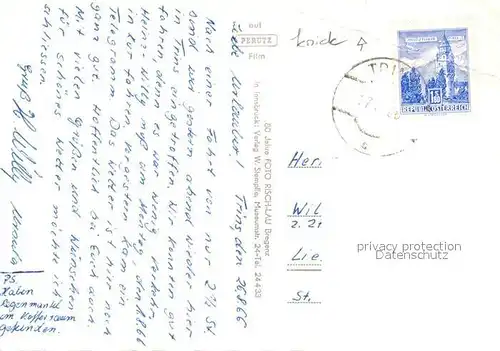 Trins, den 26.8.66
Liebe Urlauber!
Nach einer Fahrt von nur 2 ½ Std
sind wir gestern abend wieder hier
in Trins eingetroffen. Wir konnten gut
fahren, denn es war wenig Verkehr.
Heinz-Willy muß am Montag, den
in zur fahren. Vorgestern kam ein
Telegramm. Das Wetter ist hier noch
ganz gut. Hoffentlich bei Euch auch.
Mit vielen Grüßen und Wünschen
für schönes Wetter möchte ich
schliessen.
Gruß H. Willy
PS
Haben
Regenmantel
im Kofferraum
gefunden.
auf
PERUTZ
Film
50 Jahre FOTO RISCH-LAU Bregenz
in Innsbruck: Verlag W. Stempfle, Museumstr. 24-Tel. 24 4 33
knick
REPUBLIK ÖSTERREICH
Her
Wil
Lie
St.
privacy protection
Datenschutz